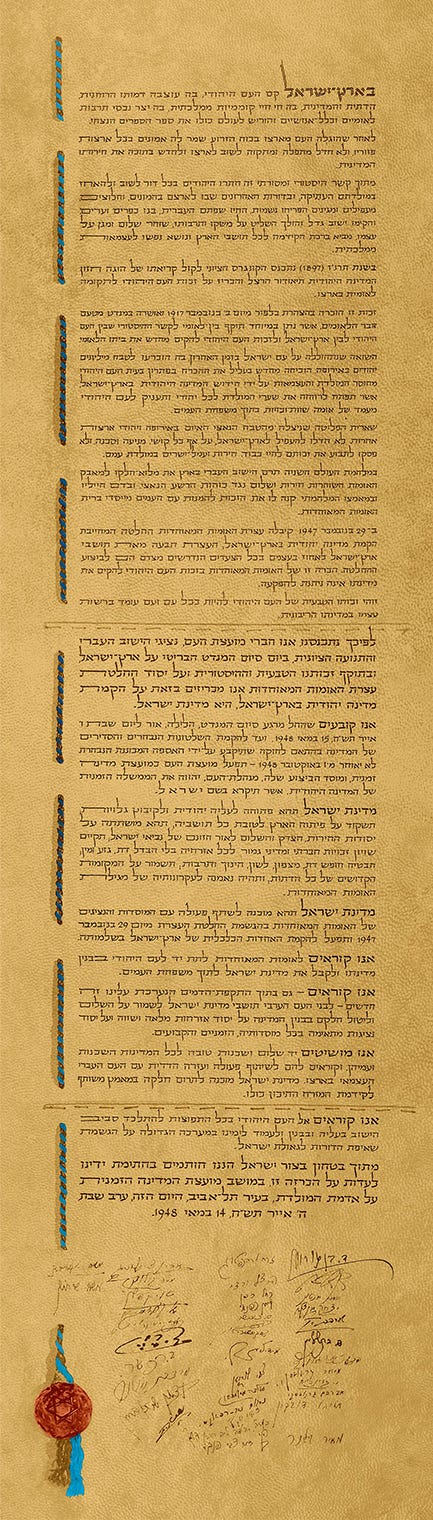 בארץ־ישראל קם העם היהודי, בה עוצבה דמותו הרוחנית,
הדתית והמדינית, בה חי חיי קוממיות ממלכתית, בה יצר נכסי תרבות
לאומיים וכלל־אנושיים והוריש לעולם כולו את ספר הספרים הנצחי.
לאחר שהוגלה העם מארצו בכוח הזרוע שמר לה אמונים בכל ארצות
פזוריו ולא חדל מתפלה ומתקוה לשוב לארצו ולחדש בתוכה את חירותו
המדינית.
מתוך קשר היסטורי ומסורתי זה חתרו היהודים בכל דור לשוב ולהאחז
במולדתם העתיקה, ובדורות האחרונים שבו לארצם בהמונים, וחלוצים,
מעפילים ומגינים הפריחו נשמות, החיו שפתם העברית, בנו כפרים וערים
והקימו ישוב גדל והולך השליט על משקו ותרבותו, שוחר שלום ומגן על
עצמו, מביא ברכת הקידמה לכל תושבי הארץ ונושא נפשו לעצמאות
ממלכתית.
בשנת תרנ״ז (1897) נתכנס הקונגרס הציוני לקול קריאתו של הוגה חזון
המדינה היהודית תיאודור הרצל והכריז על זכות העם היהודי לתקומה
לאומית בארצו.
זכות זו הוכרה בהצהרת בלפור מיום ב׳ בנובמבר 1917 ואושרה במנדט מטעם
חבר הלאומים, אשר נתן במיוחד תוקף בין־לאומי לקשר ההיסטורי שבין העם
היהודי לבין ארץ־ישראל ולזכות העם היהודי להקים מחדש את ביתו הלאומי.
השואה שנתחוללה על עם ישראל בזמן האחרון, בה הוכרעו לטבח מיליונים
יהודים באירופה, הוכיחה מחדש בעליל את ההכרח בפתרון בעית העם היהודי
מחוסר המולדת והעצמאות על־ידי חידוש המדינה היהודית בארץ־ישראל,
אשר תפתח לרווחה את שערי המולדת לכל יהודי ותעניק לעם היהודי
מעמד של אומה שוות־זכויות בתוך משפחת העמים.
שארית הפליטה שניצלה מהטבח הנאצי האיום באירופה ויהודי ארצות
אחרות לא חדלו להעפיל לארץ־ישראל, על אף כל קושי, מניעה וסכנה ולא
פסקו לתבוע את זכותם לחיי כבוד, חירות ועמל־ישרים במולדת עמם.
במלחמת העולם השניה תרם הישוב העברי בארץ את מלוא־חלקו למאבק
האומות השוחרות חירות ושלום נגד כוחות הרשע הנאצי, ובדם חייליו
ובמאמצו המלחמתי קנה לו את הזכות להמנות עם העמים מייסדי ברית
האומות המאוחדות.
ב־29 בנובמבר 1947 קיבלה עצרת האומות המאוחדות החלטה המחייבת
הקמת מדינה יהודית בארץ־ישראל; העצרת תבעה מאת תושבי
ארץ־ישראל לאחוז בעצמם בכל הצעדים הנדרשים מצדם הם לביצוע
ההחלטה. הכרה זו של האומות המאוחדות בזכות העם היהודי להקים את
מדינתו אינה ניתנת להפקעה.
זוהי זכותו הטבעית של העם היהודי להיות ככל עם ועם עומד ברשות
עצמו במדינתו הריבונית.
לפיכך נתכנסנו, אנו חברי מועצת העם, נציגי הישוב העברי
והתנועה הציונית, ביום סיום המנדט הבריטי על ארץ־ישראל
ובתוקף זכותנו הטבעית וההיסטורית ועל יסוד החלטת
עצרת האומות המאוחדות אנו מכריזים בזאת על הקמת
מדינה יהודית בארץ־ישראל, היא מדינת ישראל.
אנו קובעים שהחל מרגע סיום המנדט, הלילה, אור ליום שבת ו׳
אייר תש״ח, 15 במאי 1948, ועד להקמת השלטונות הנבחרים והסדירים
של המדינה בהתאם לחוקה שתיקבע על־ידי האספה המכוננת הנבחרת
לא יאוחר מ־1 באוקטובר 1948 – תפעל מועצת העם כמועצת מדינה
זמנית, ומוסד הביצוע שלה, מנהלת־העם, יהווה את הממשלה הזמנית
של המדינה היהודית, אשר תיקרא בשם ישראל.
מדינת ישראל תהא פתוחה לעליה יהודית ולקיבוץ גלויות;
תשקוד על פיתוח הארץ לטובת כל תושביה; תהא מושתתה על
יסודות החירות, הצדק והשלום לאור חזונם של נביאי ישראל; תקיים
שויון זכויות חברתי ומדיני גמור לכל אזרחיה בלי הבדל דת, גזע ומין;
תבטיח חופש דת, מצפון, לשון, חינוך ותרבות; תשמור על המקומות
הקדושים של כל הדתות; ותהיה נאמנה לעקרונותיה של מגילת
האומות המאוחדות.
מדינת ישראל תהא מוכנה לשתף פעולה עם המוסדות והנציגים
של האומות המאוחדות בהגשמת החלטת העצרת מיום 29 בנובמבר
1947 ותפעל להקמת האחדות הכלכלית של ארץ־ישראל בשלמותה.
אנו קוראים לאומות המאוחדות לתת יד לעם היהודי בבנין
מדינתו ולקבל את מדינת ישראל לתוך משפחת העמים.
אנו קוראים – גם בתוך התקפת־הדמים הנערכת עלינו זה
חדשים – לבני העם הערבי תושבי מדינת ישראל לשמור על השלום
וליטול חלקם בבנין המדינה על יסוד אזרחות מלאה ושווה ועל יסוד
נציגות מתאימה בכל מוסדותיה, הזמניים והקבועים.
אנו מושיטים יד שלום ושכנות טובה לכל המדינות השכנות
ועמיהן, וקוראים להם לשיתוף פעולה ועזרה הדדית עם העם העברי
העצמאי בארצו. מדינת ישראל מוכנה לתרום חלקה במאמץ משותף
לקידמת המזרח התיכון כולו.
אנו קוראים אל העם היהודי בכל התפוצות להתלכד סביב
הישוב בעליה ובבנין ולעמוד לימינו במערכה הגדולה על הגשמת
שאיפת הדורות לגאולת ישראל.
מתוך בטחון בצור ישראל הננו חותמים בחתימת ידינו
לעדות על הכרזה זו, במושב מועצת המדינה הזמנית,
על אדמת המולדת, בעיר תל־אביב, היום הזה, ערב שבת,
ה׳ אייר תש״ח, 14 במאי 1948.
ד. בן גוריון